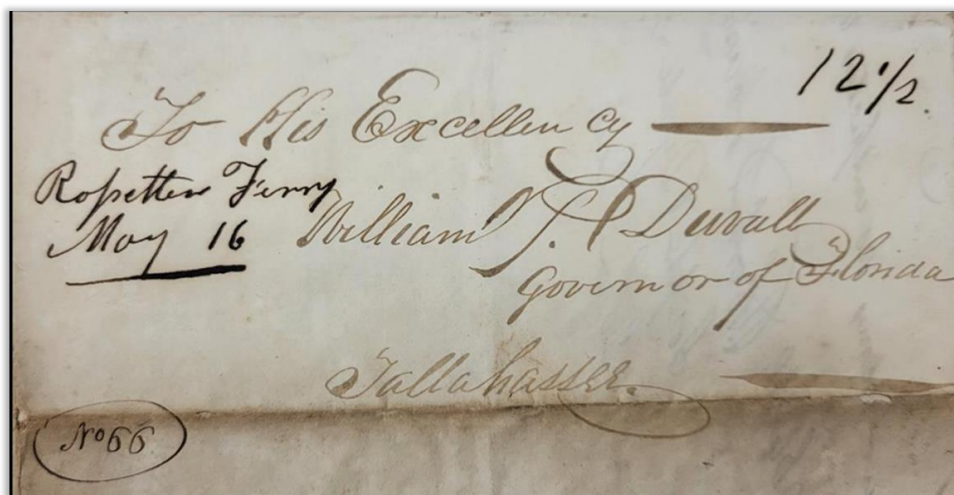 12 1/2.
To His Excellency
Rossetter Ferry
May 16
William P. Duvall
Governor of Florida
Tallahassee.
No 66